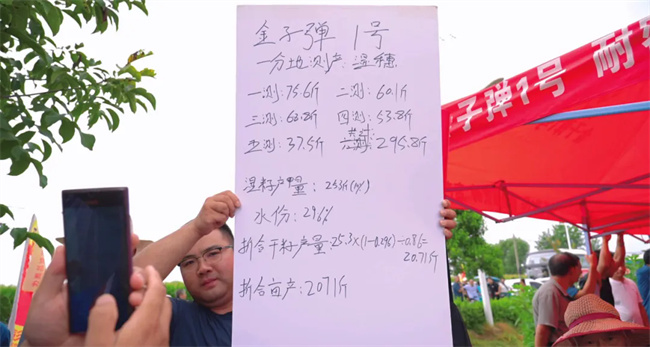 金子弹 1号
一分地测产：湿穗
一测：75.6斤 二测：60.1斤
三测：68.8斤 四测：53.8斤
五测：37.5斤 共计：295.8斤
湿籽产量：253斤(1分)
水份：29.6%
折合干籽产量：25.3×(1-0.296)÷0.86=
20.71斤
折合亩产：2071斤
子弹1号 耐